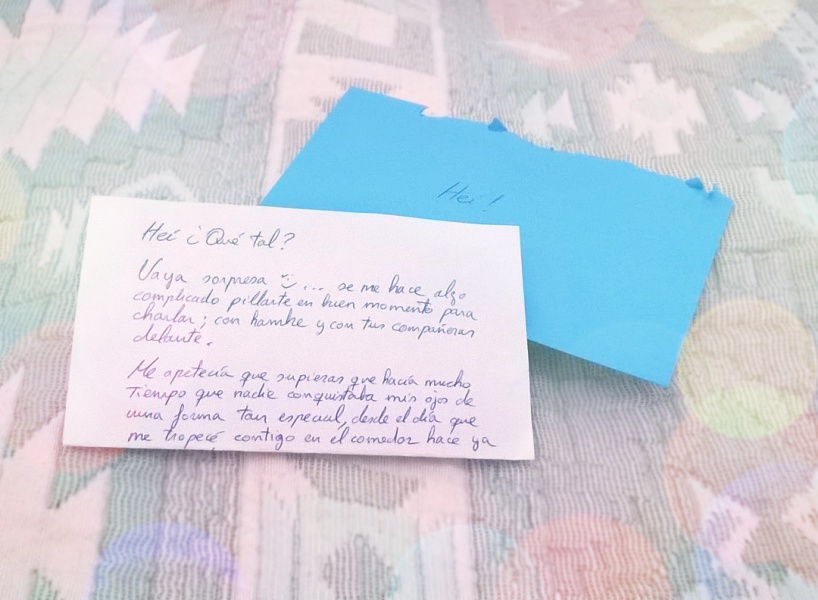 Hei!
Hei ¿Qué tal?
Vaya sorpresa :) ... se me hace algo
complicado pillarte en buen momento para
charlar; con hambre y con tus compañeras
delante.
Me apetecía que supieras que hacía mucho
tiempo que nadie conquistaba mis ojos de
una forma tan especial, desde el día que
me tropecé contigo en el comedor hace ya